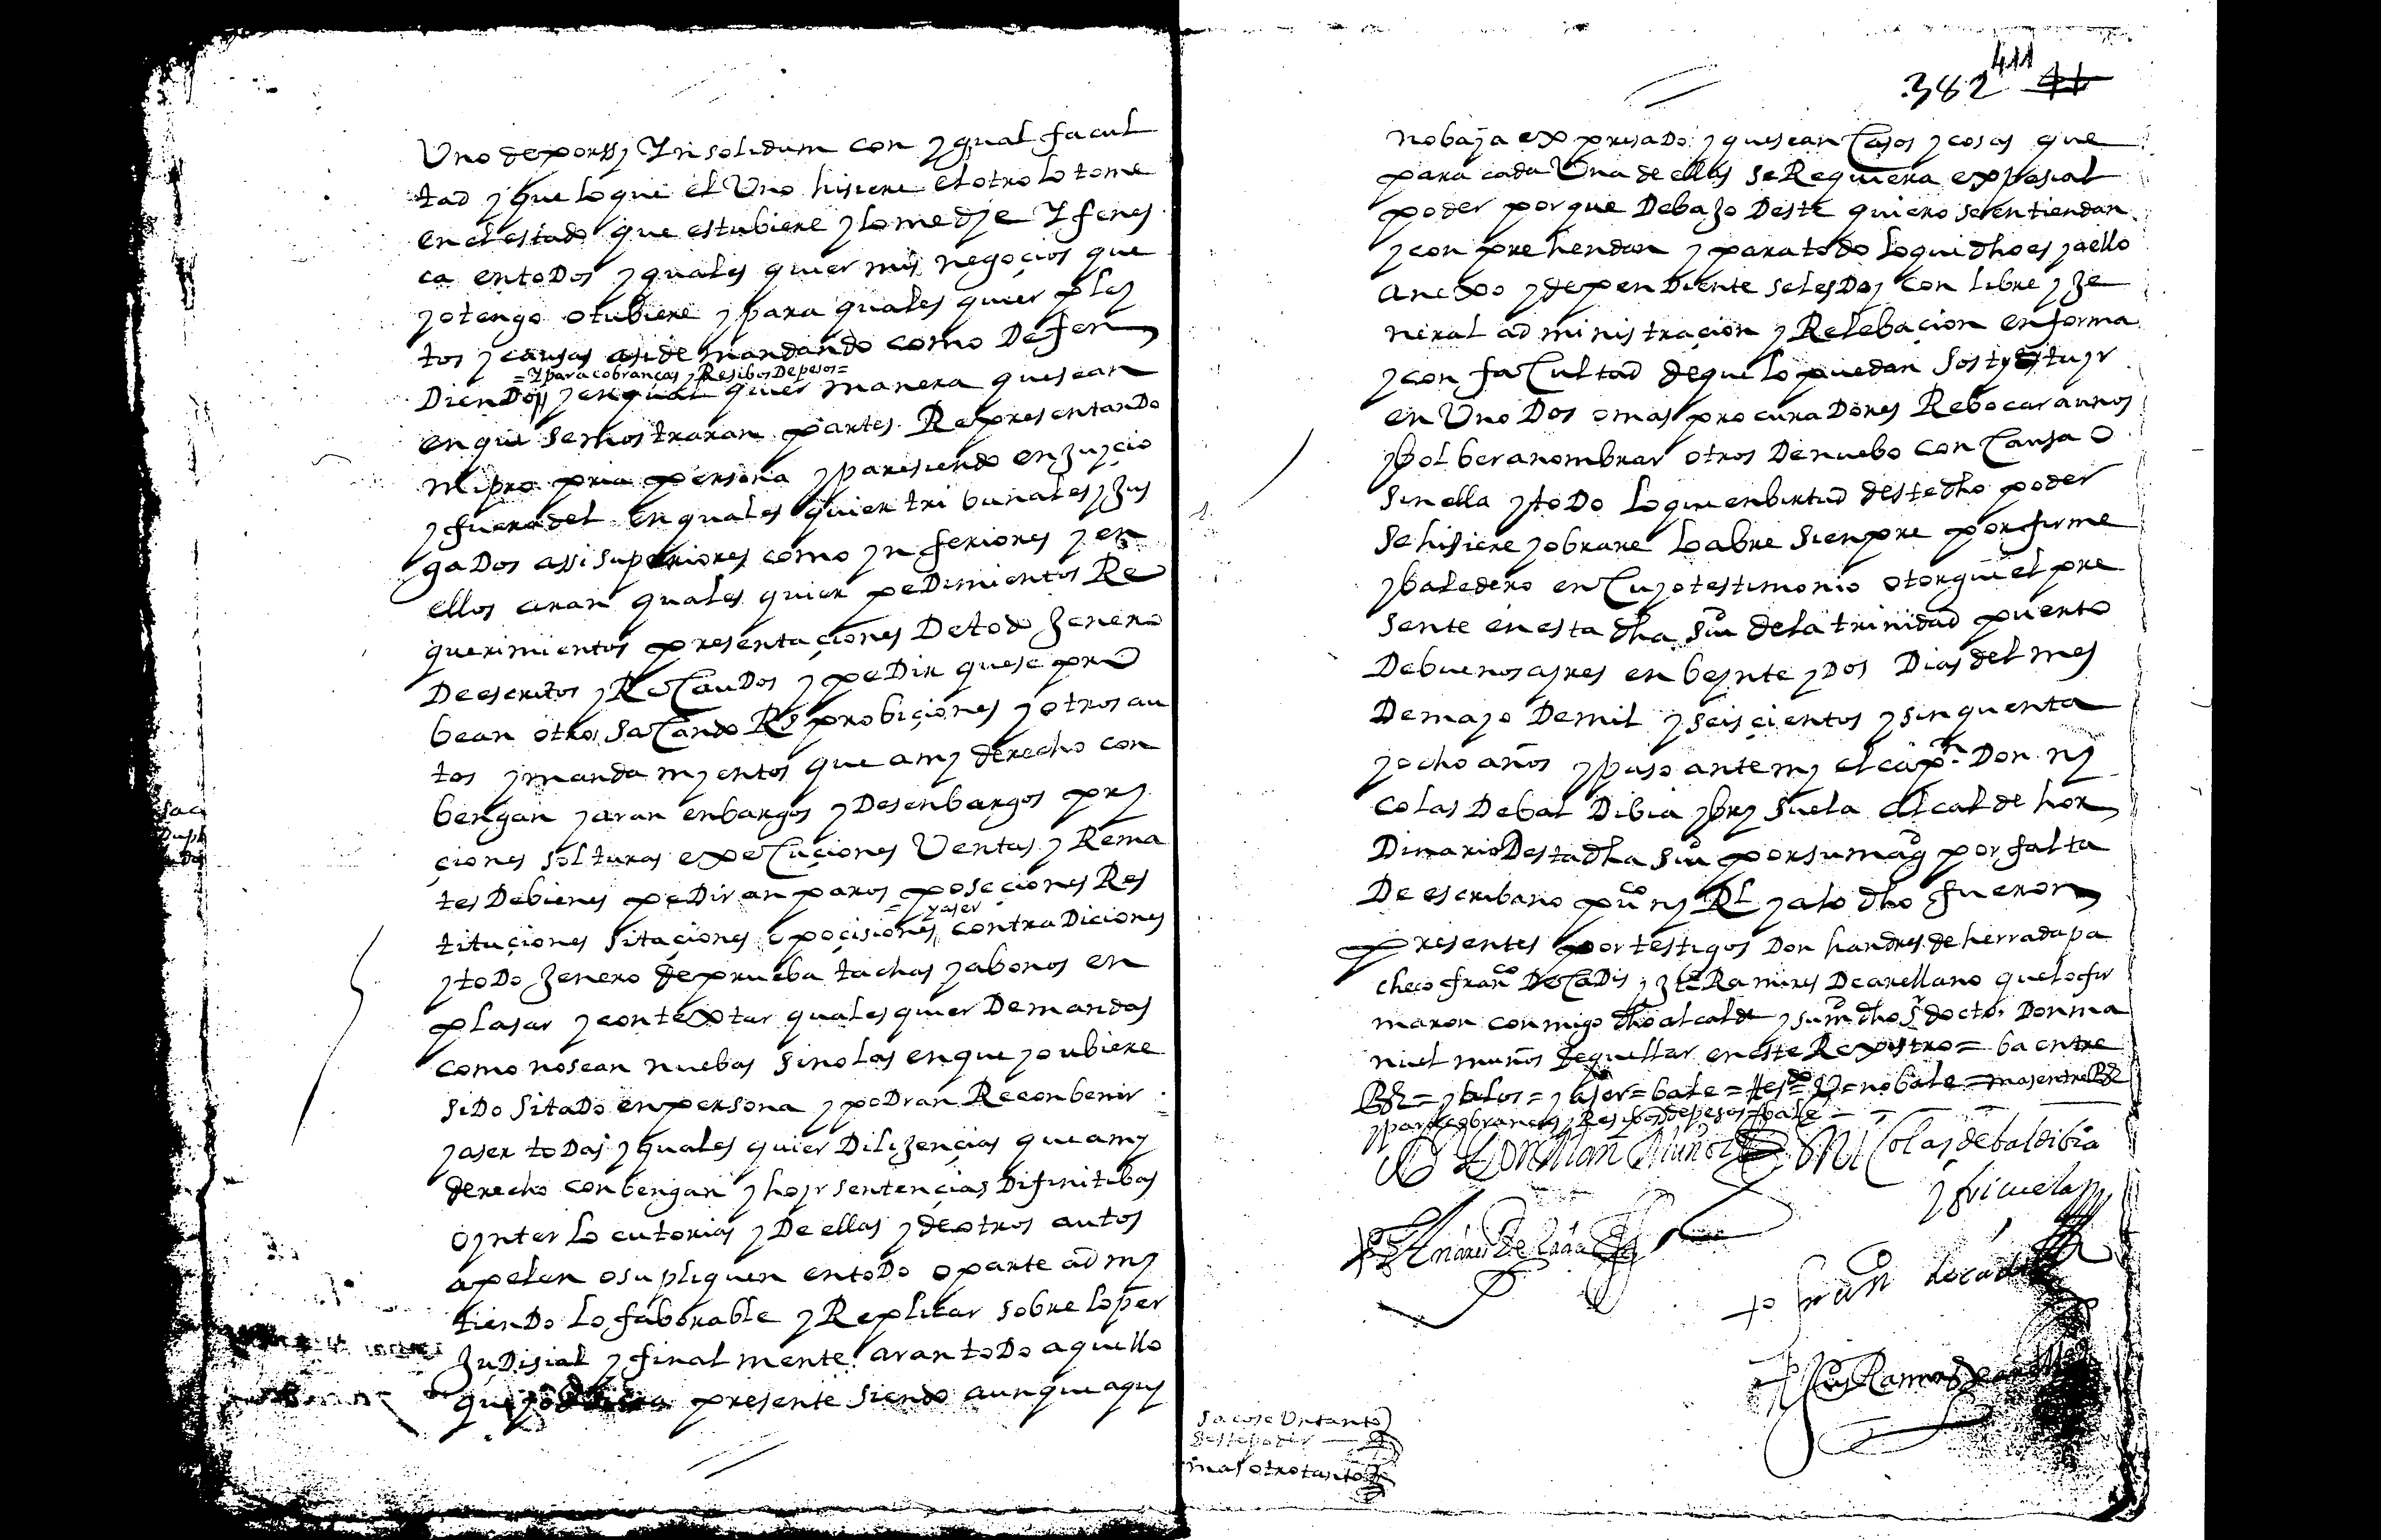 Uno de por ssy Yn solidum con ygual facul
tad y que lo que el Uno hisiere el otro lo tome
en el estado que estubiere y lo medje Y fenes
ca en toDos y quales quier mis negoçios que
yo tengo o tubiere y para quales quier pley
tos y causas asi de mandando como Defen
=Y para cobranças y Resibos De pesos=
DienDo y en qual quier manera que sean
en que se mostraran partes RepresentanDo
mi propria persona y paresiendo en Juycio
y fuera del en quales quier tribunales y Jus
gaDos assi superiores como ynferiores y en
ellos aran quales quier peDimientos Re
querimientos presentaçiones De todo Jenero
De escritos y ReCauDos y peDir que se pro
bean otros saCando Rs probiçiones y otros au
tos y manda myentos que a my derecho con
bengan y aran enbargos y Desenbargos pry
çiones solturas exeCuçiones Ventas y Rema
tes De bienes peDir anparos poseçiones Res
y aser
tituçiones sitaçiones opoçisiones contra Diciones
y toDo Jenero de prueba tachas y abonos en
plasar y contextar quales quier Demandas
como no sean nuebas sino las en que yo ubiere
siDo sitaDo en persona y poDran Reconbenir
y aser toDas y quales quier Dilijencias que a my
derecho conbengan y hoyr sentençias Difinitibas
o ynterlocutorias y De ellas y de otros autos
apelen o supliquen en toDo o parte admy
tienDo lo faborable y Replicar sobre lo per
JuDisial y finalmente aran toDo aquello
que yo presente siendo aunque aquy
411
382
no baja expresaDo y que sean Casos y cosas que
para cada Una de ellas se Requiera expesial
poder por que Debajo Deste quiero se entiendan
y conprehendan y para todo lo que dho es y a ello
anexo y dependiente se les Doy con libre y Je
neral administraçion y Relebaçion en forma
y con faCultad de que lo puedan sostytuyr
en Uno Dos o mas procuraDores Rebocar a unos
y bolber a nombrar otros De nuebo con Causa o
sin ella y toDo lo que en birtud deste dho poder
se hisiere y obrare lo abre sienpre por firme
y baledero en Cuyo testimonio otorgue el pre
sente en esta dha Siu de la trinidad puerto
De buenos ayres en beynte y Dos Dias del mes
De mayo De mil y seisçientos y sinquenta
y ocho años y paso ante my el capn Don ny
colas De bal Dibia y bry suela alcalde hor
Dinario Desta dha Siu por su magd por falta
De escribano puco ny Rl y a lo dho fueron
presentes por testigos Don handres de herrada pa
checo franco De CaDis y Ramires De arellano que lo fir
maron conmigo dho alcalde y su md dho sr doctor Don ma
nuel muños de quellar en este Rexistro = ba entre
= y aser = bale = = no bale = mas entre
y para cobrancas y Resybos de pesos = bale
Don Man Muñoz
Nicolas de baldibia
y briçuela
fran de cadi
Ramires de
sacose Un tanto
deste poder
mas otro tanto